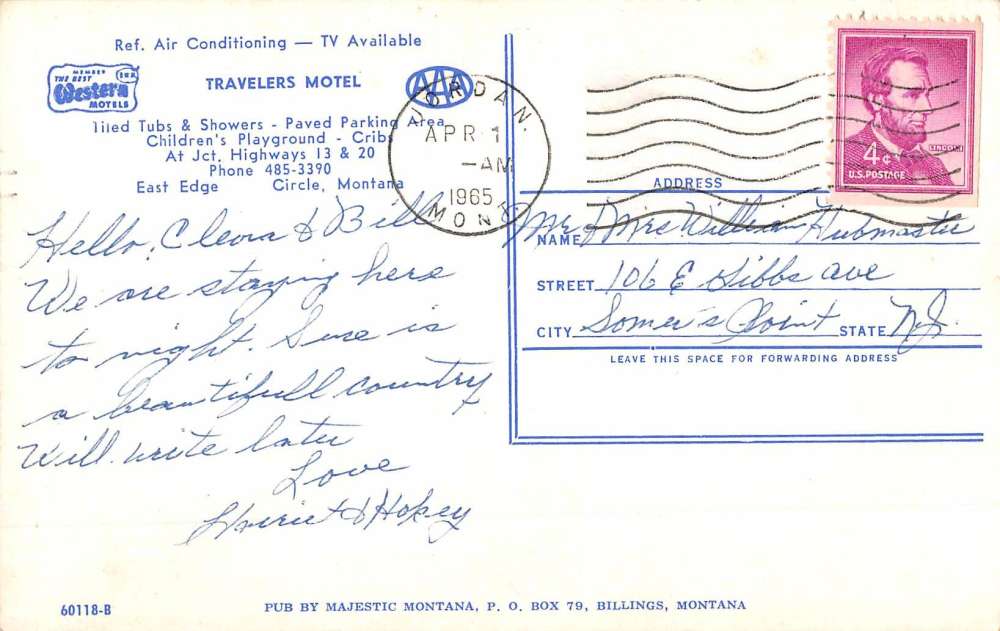 Ref. Air Conditioning — TV Available
MEMBER
THE BEST
Western
MOTELS
TRAVELERS MOTEL
AAA
Tiled Tubs & Showers - Paved Parking Area
Children's Playground - Cribs
At Jct. Highways 13 & 20
Phone 485-3390
East Edge Circle, Montana
JORDAN.
APR 1
—AM
1965
MONT.
4¢
LINCOLN
U.S. POSTAGE
Hello, Cleora & Bill
We are staying here
to night. Sure is
a beautifull country
Will write later
Love
Harriet & Hokey
ADDRESS
NAME Mr & Mrs William Hubmaster
STREET 106 E Gibbs ave
CITY Somer's Point STATE N.J.
LEAVE THIS SPACE FOR FORWARDING ADDRESS
60118-B
PUB BY MAJESTIC MONTANA, P. O. BOX 79, BILLINGS, MONTANA